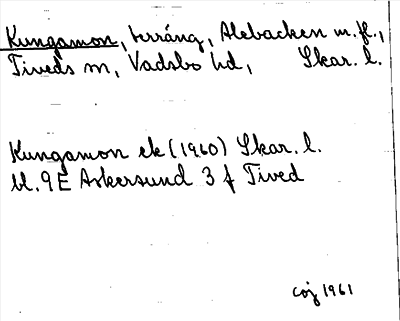 Kungamon, terräng, Alebacken m.fl.,
Tiveds sn, Vadsbo hd, Skar. l.
Kungamon ek (1960) Skar. l.
bl. 9E Askersund 3 f Tived
coj 1961